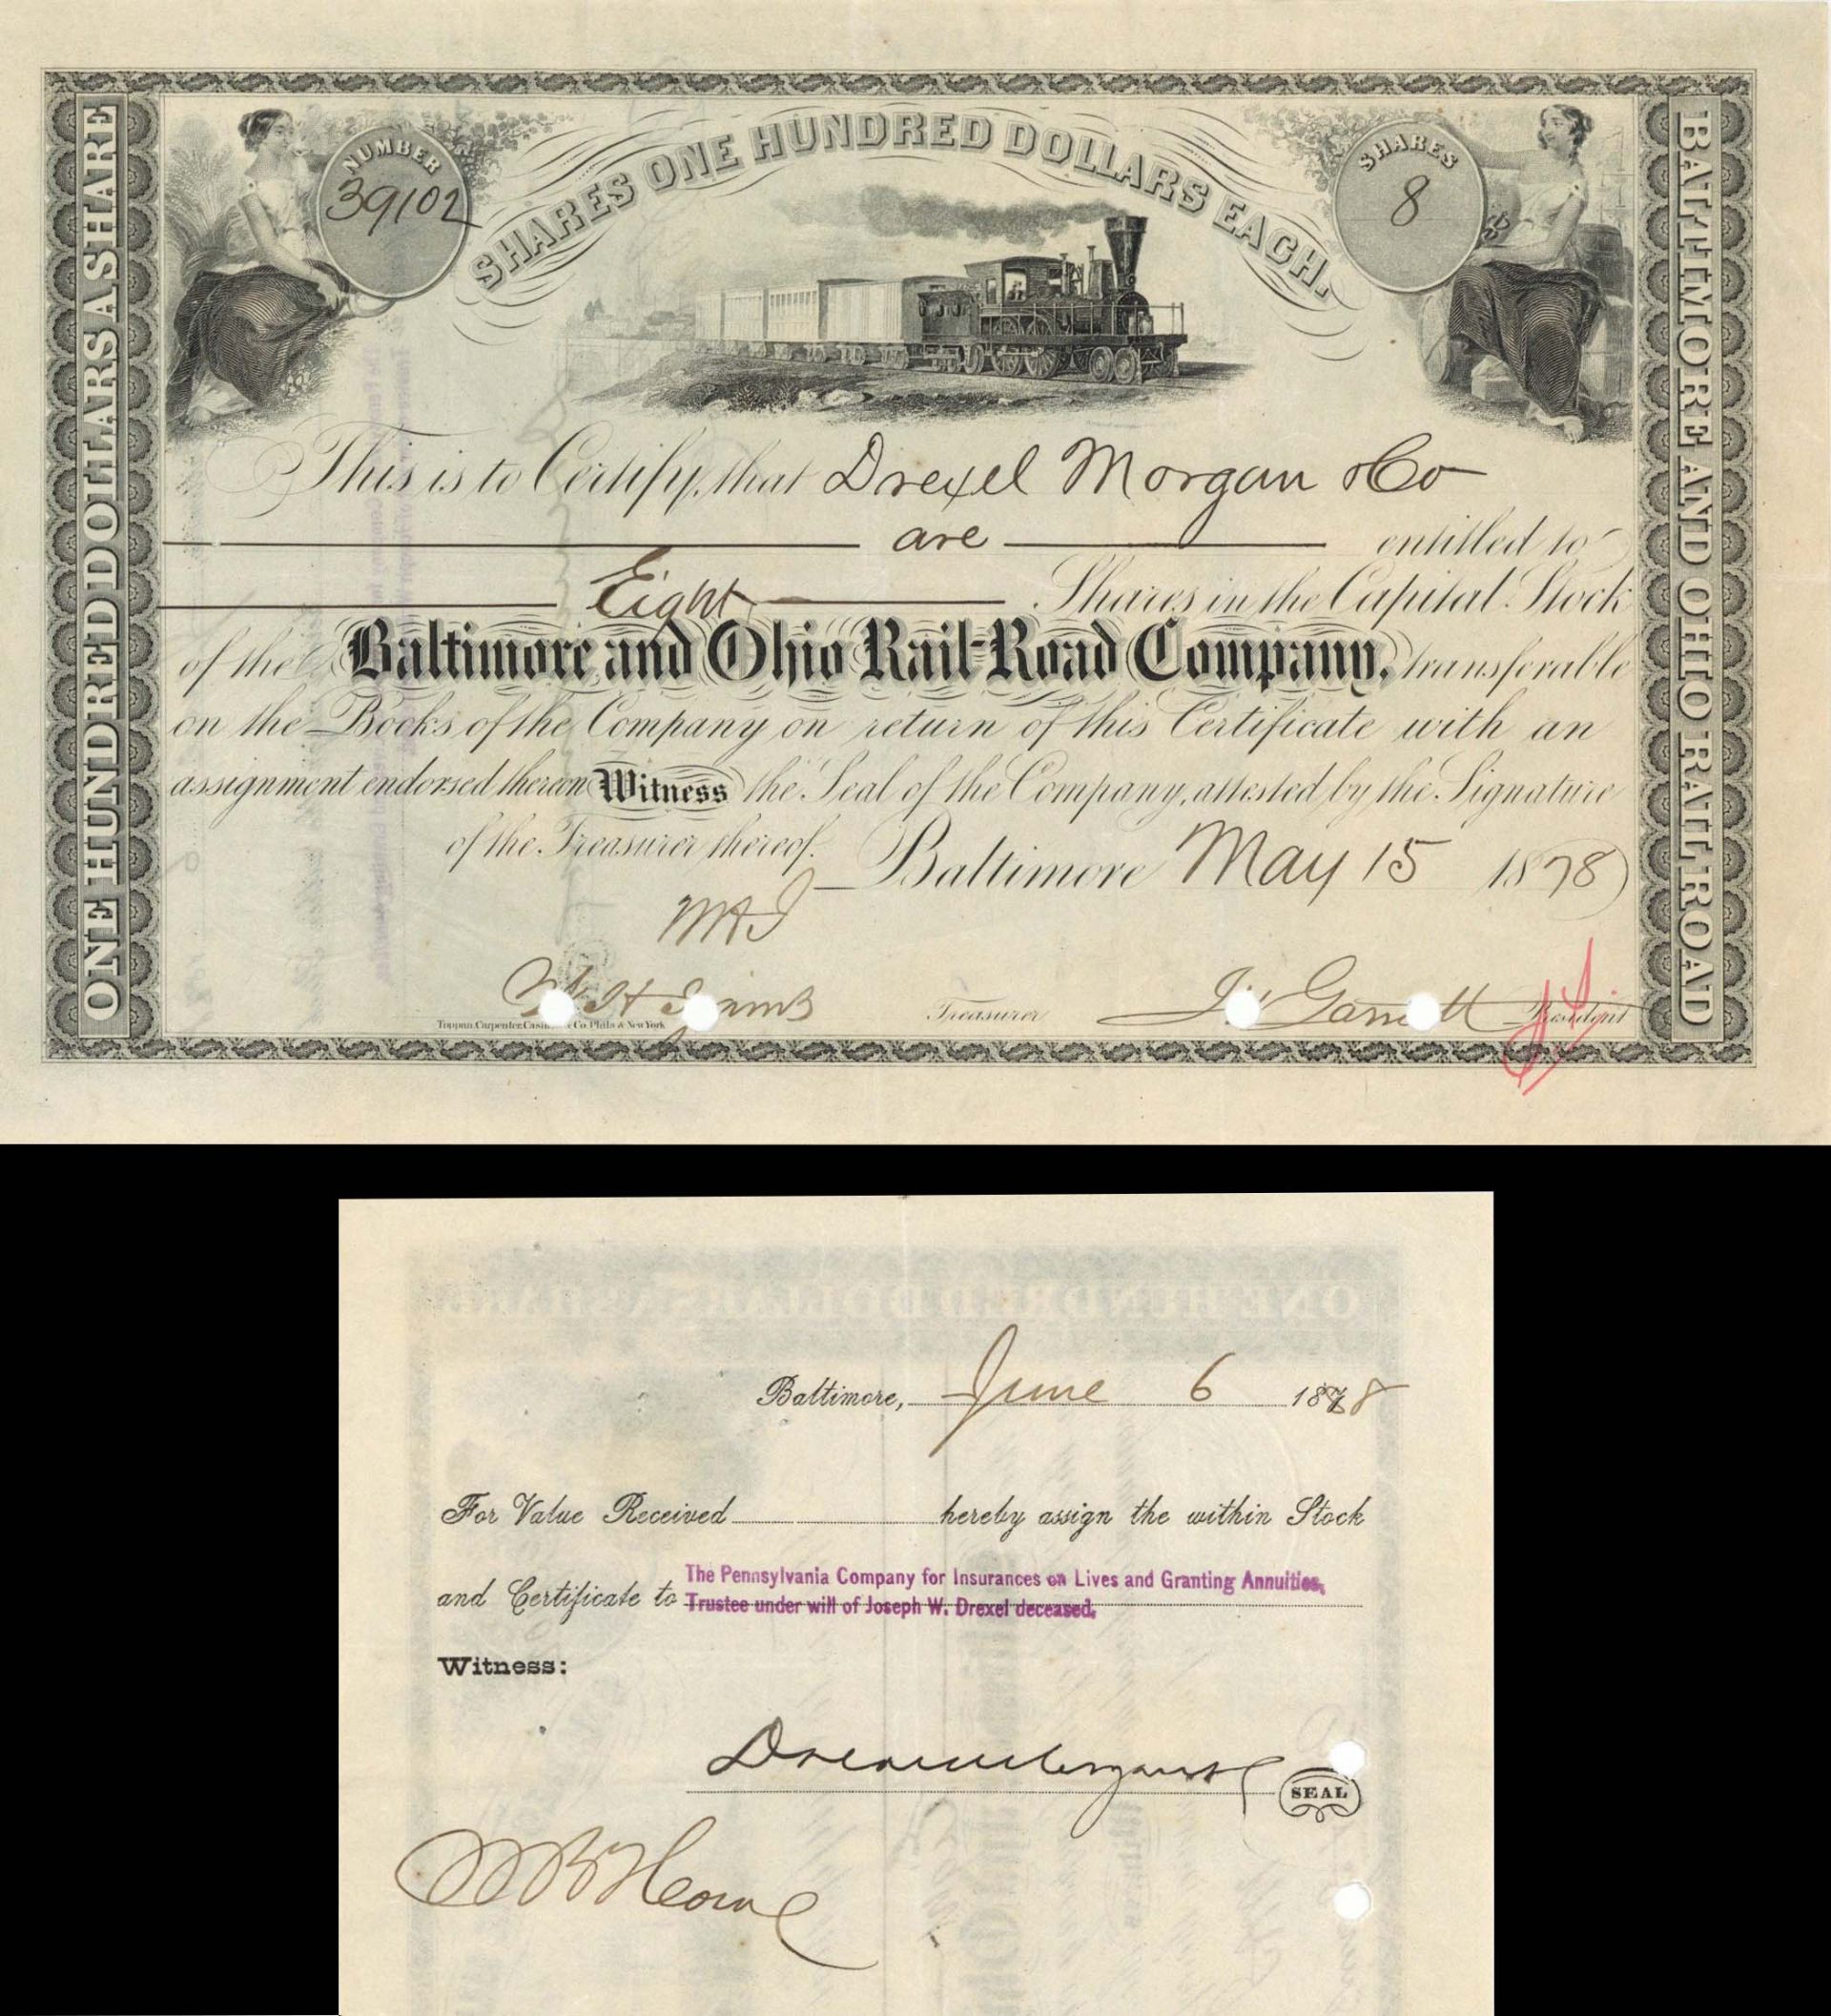 ONE HUNDRED DOLLARS A SHARE
NUMBER
39102
SHARES ONE HUNDRED DOLLARS EACH.
SHARES
8
BALTIMORE AND OHIO RAIL ROAD
This is to Certify, that Drexel Morgan & Co
are entitled to
Eight Shares in the Capital Stock
of the Baltimore and Ohio Rail-Road Company, transferable
on the Books of the Company on return of this Certificate with an
assignment endorsed thereon Witness the Seal of the Company, attested by the Signature
of the Treasurer thereof.
Baltimore May 15 1878
Treasurer
J W Garrett President
Toppan, Carpenter, Co. Phila & New York
Baltimore, June 6 1888
For Value Received hereby assign the within Stock
and Certificate to The Pennsylvania Company for Insurances on Lives and Granting Annuities,
Trustee under will of Joseph W. Drexel deceased.
Witness:
Drexel Morgan & Co
SEAL